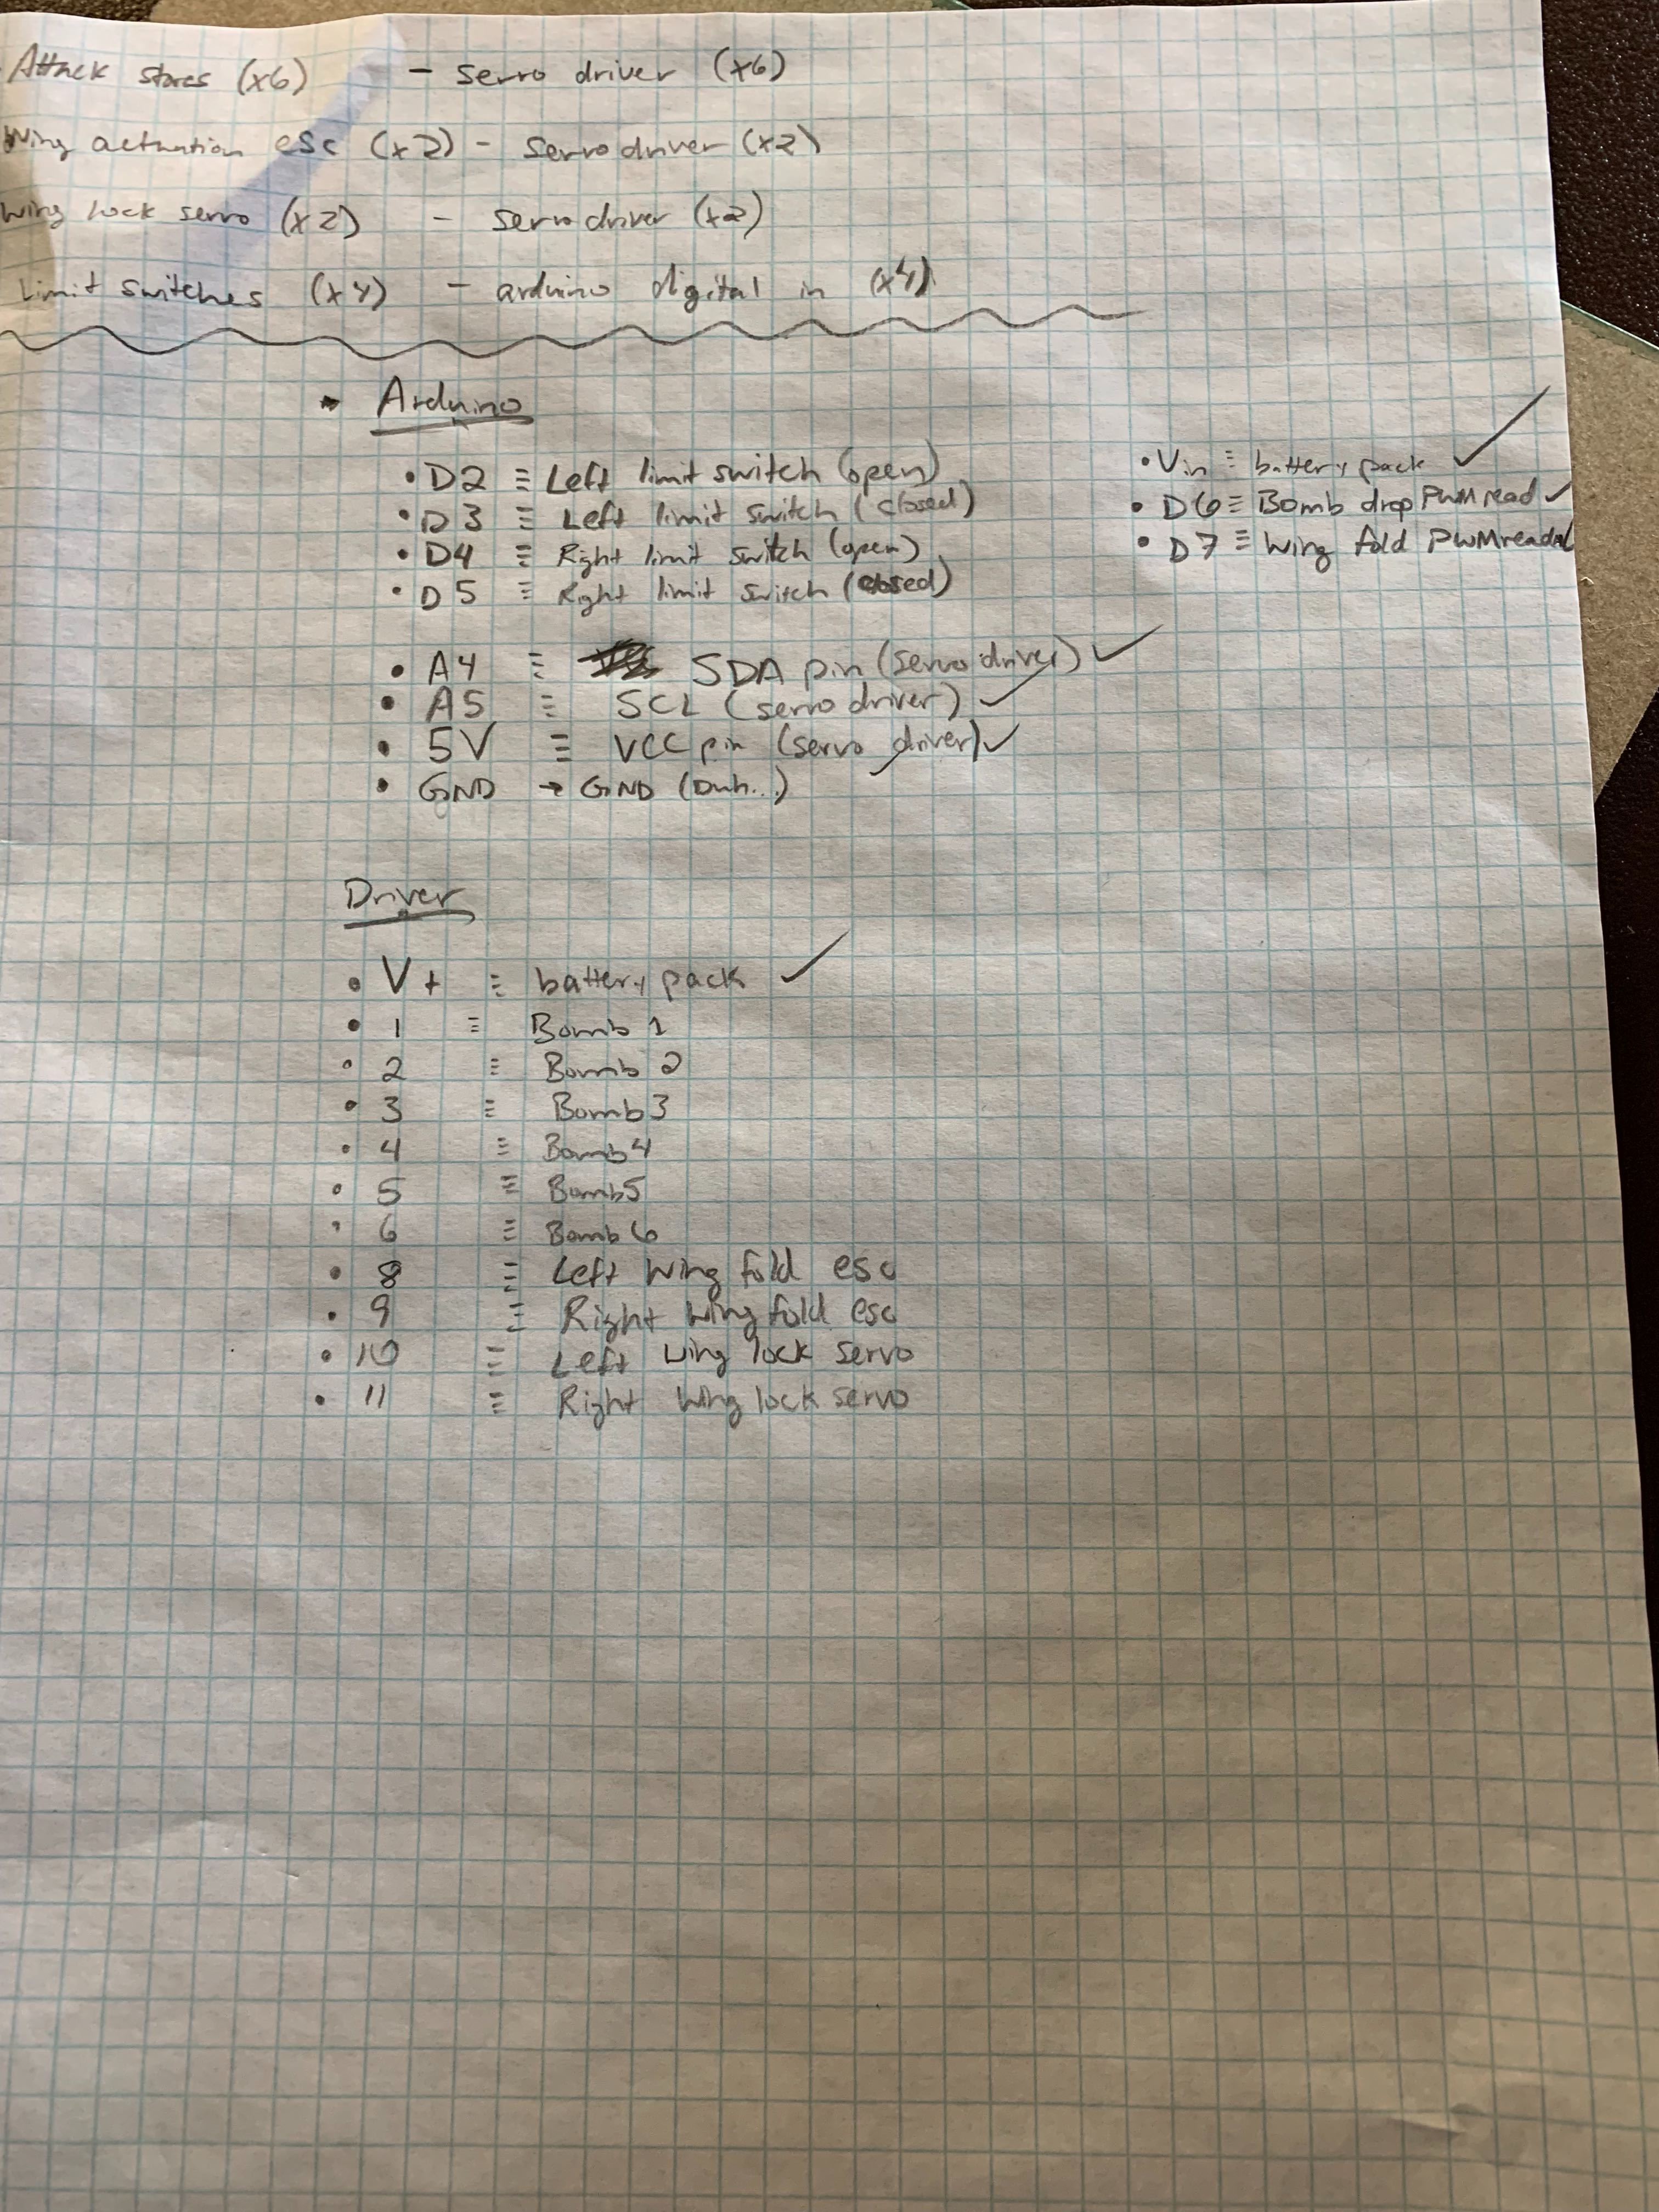 Attack stores (x6) - servo driver (x6)
Wing actuation esc (x2) - servo driver (x2)
Wing lock servo (x2) - servo driver (x2)
Limit switches (x4) - arduino digital in (x4)
• Arduino
• D2 ≡ Left limit switch (open)
• D3 ≡ Left limit switch (closed)
• D4 ≡ Right limit switch (open)
• D5 ≡ Right limit switch (closed)
• A4 ≡ SDA pin (servo driver) ✓
• A5 ≡ SCL (servo driver) ✓
• 5V ≡ VCC pin (servo driver) ✓
• GND → GND (Duh...) ✓
• Vin ≡ battery pack ✓
• D6 ≡ Bomb drop PWM read ✓
• D7 ≡ Wing fold PWM read ✓
Driver
• V+ ≡ battery pack ✓
• 1 ≡ Bomb 1
• 2 ≡ Bomb 2
• 3 ≡ Bomb 3
• 4 ≡ Bomb 4
• 5 ≡ Bomb 5
• 6 ≡ Bomb 6
• 8 ≡ Left wing fold esc
• 9 ≡ Right wing fold esc
• 10 ≡ Left wing lock servo
• 11 ≡ Right wing lock servo